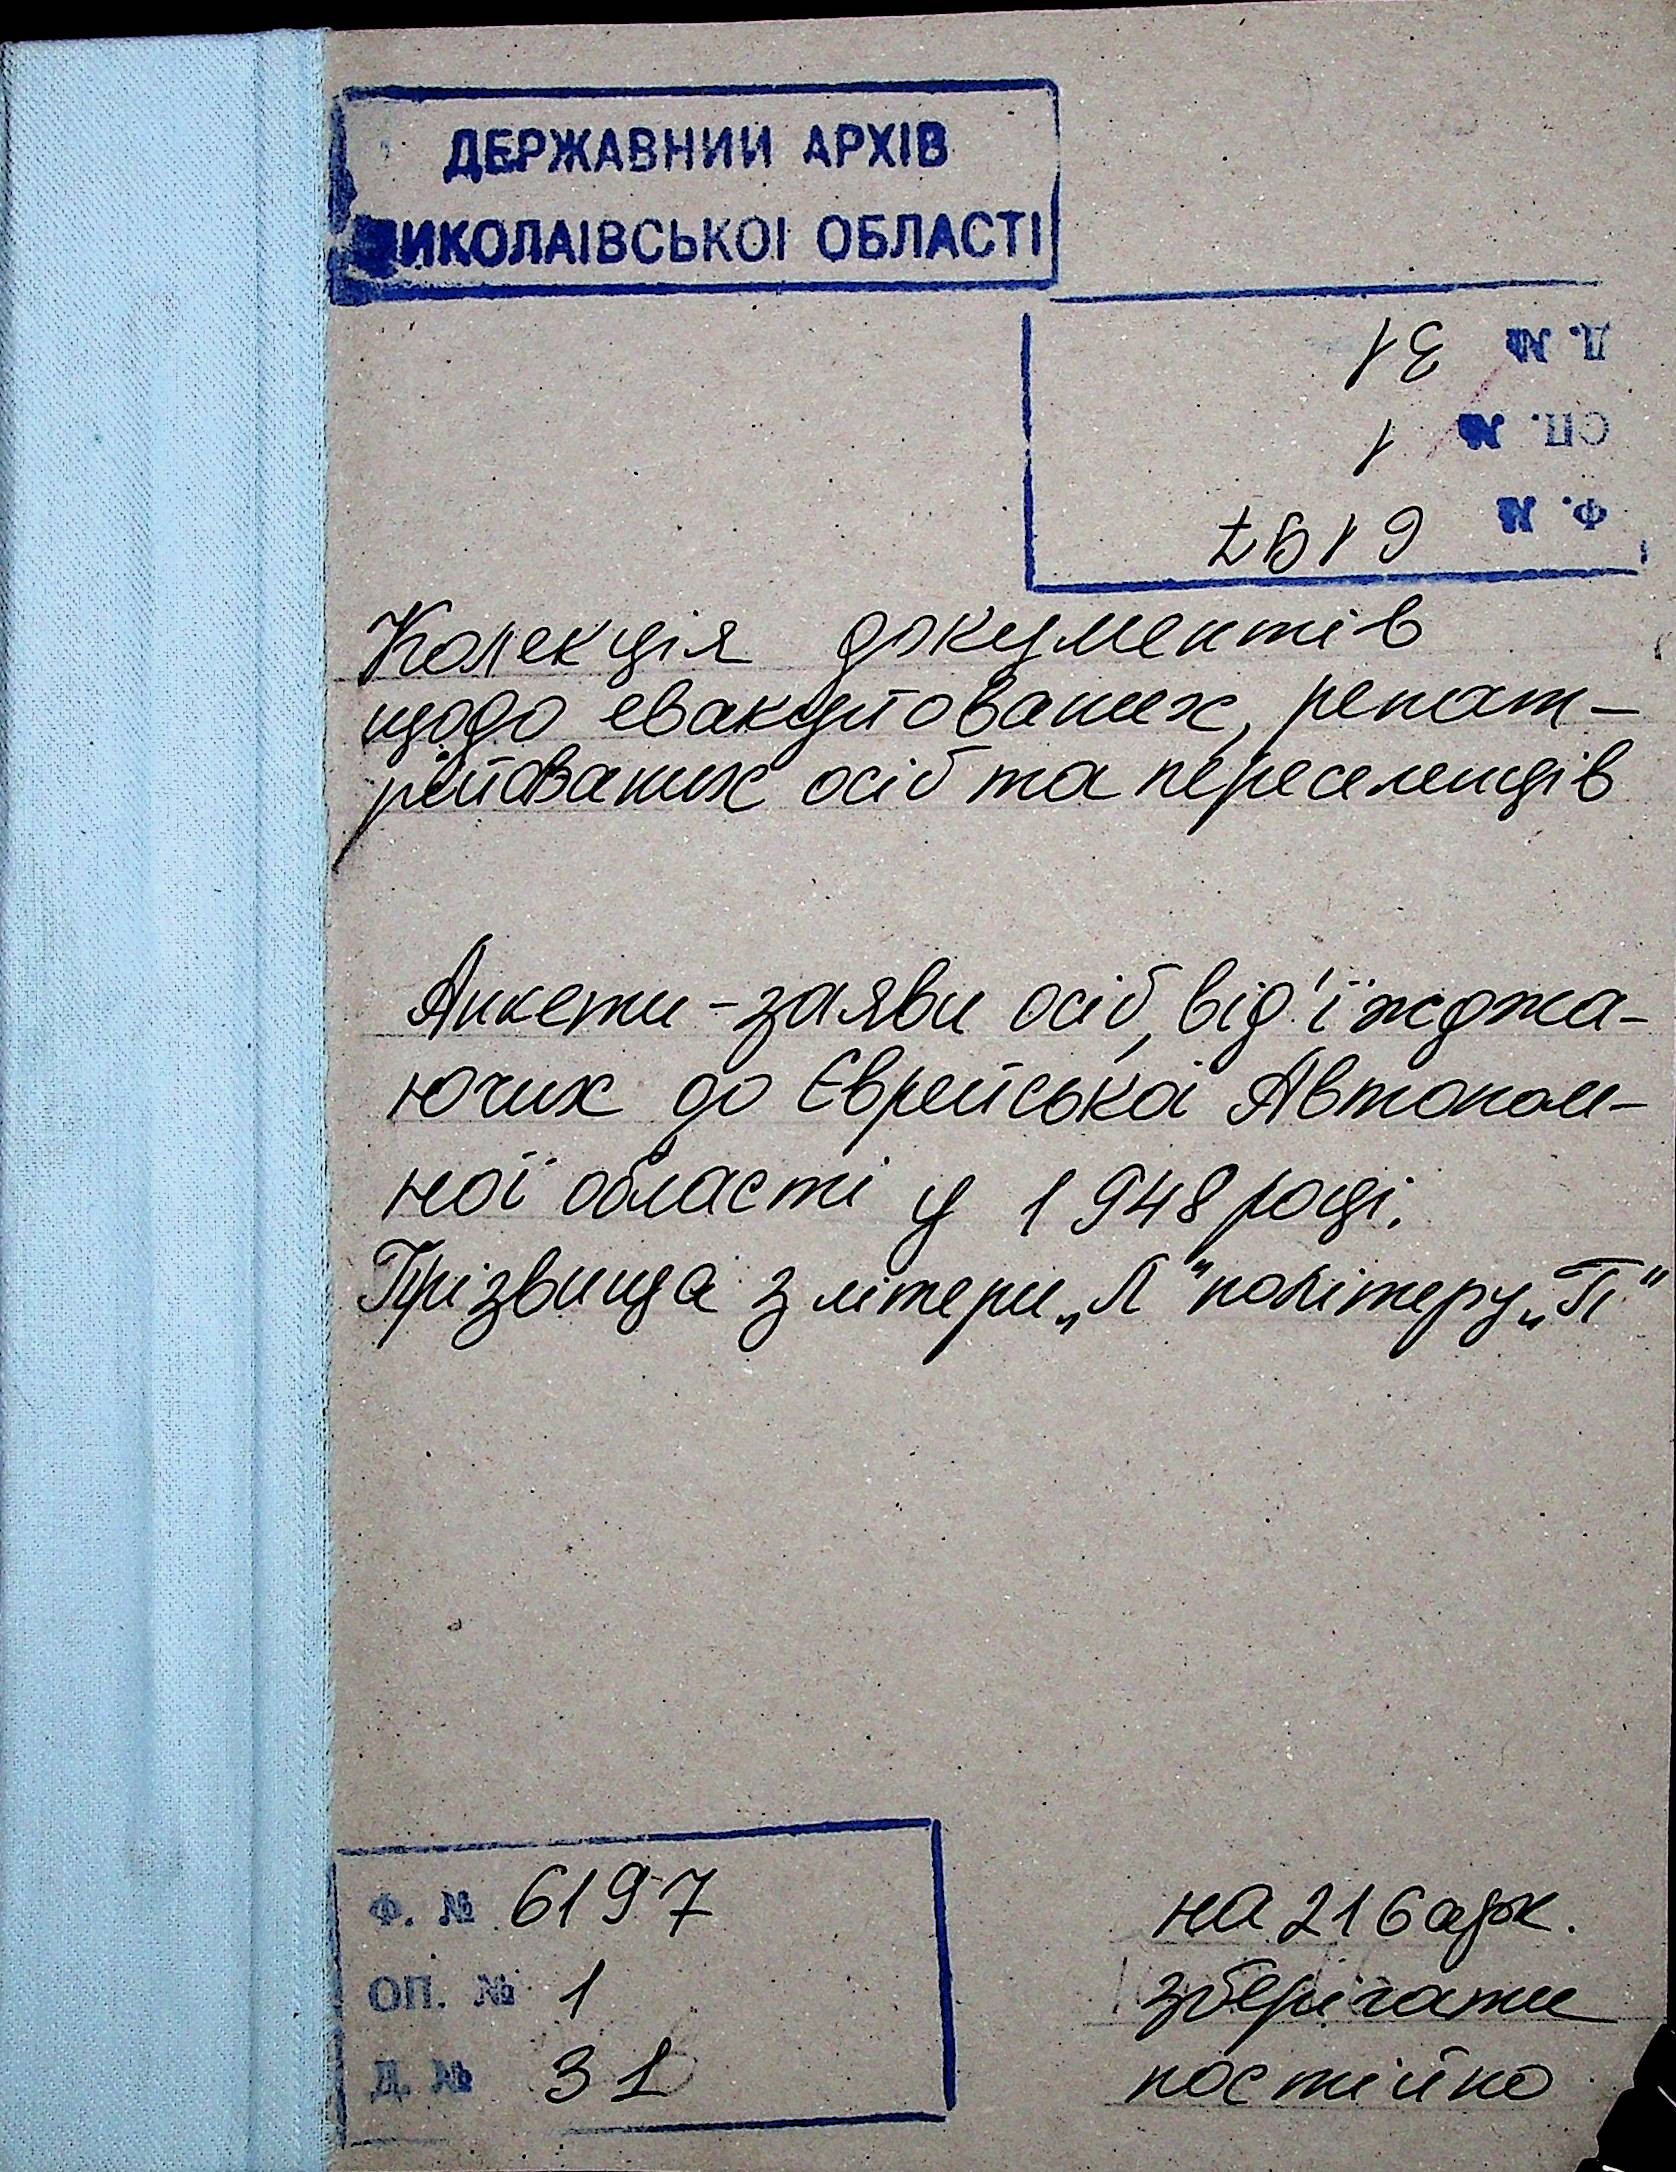 ДЕРЖАВНИЙ АРХІВ
МИКОЛАЇВСЬКОЇ ОБЛАСТІ
Д. № 31
ОП. № 1
Ф. № 6197
Колекція документів
щодо евакуйованих, репат-
рійованих осіб та переселенців
Анкети-заяви осіб, від'їжджа-
ючих до Єврейської Автоном-
ної області у 1948 році.
Прізвища з літери „Л" по літеру „П"
Ф. № 6197
ОП. № 1
Д. № 31
на 216 арк.
зберігати
постійно